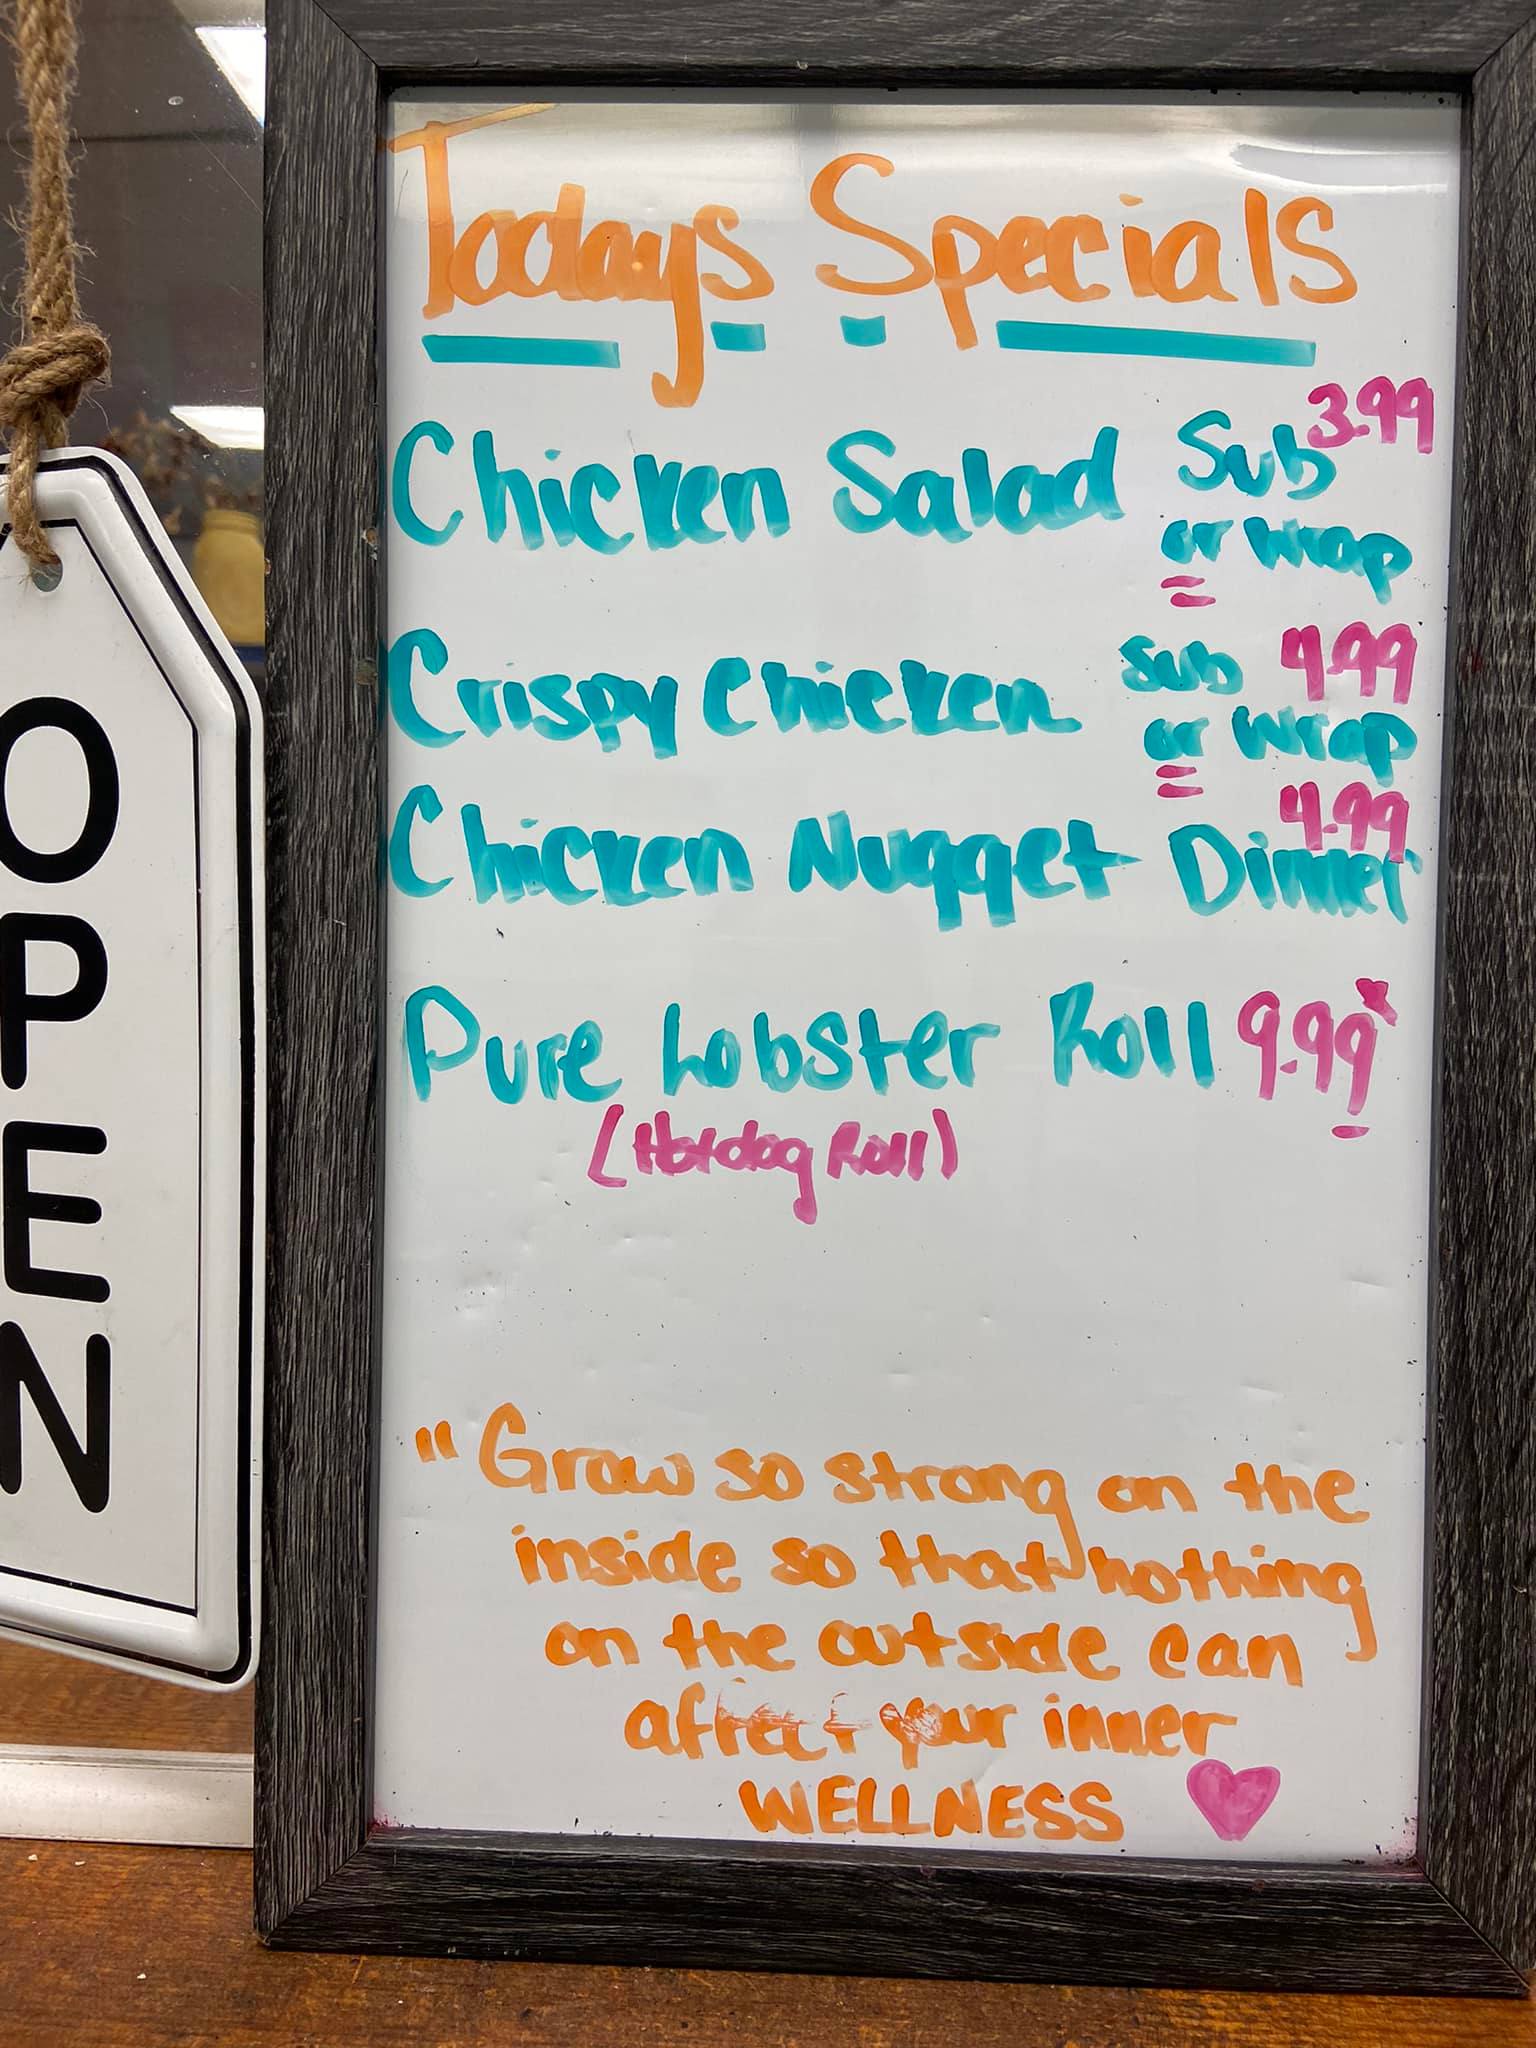 Todays Specials
Chicken Salad Sub 3.99
or Wrap
Crispy Chicken Sub 4.99
or Wrap
Chicken Nugget Dinner 4.99
Pure Lobster Roll 9.99
(Hotdog Roll)
"Grow so strong on the
inside so that nothing
on the outside can
affect your inner
WELLNESS
OPEN